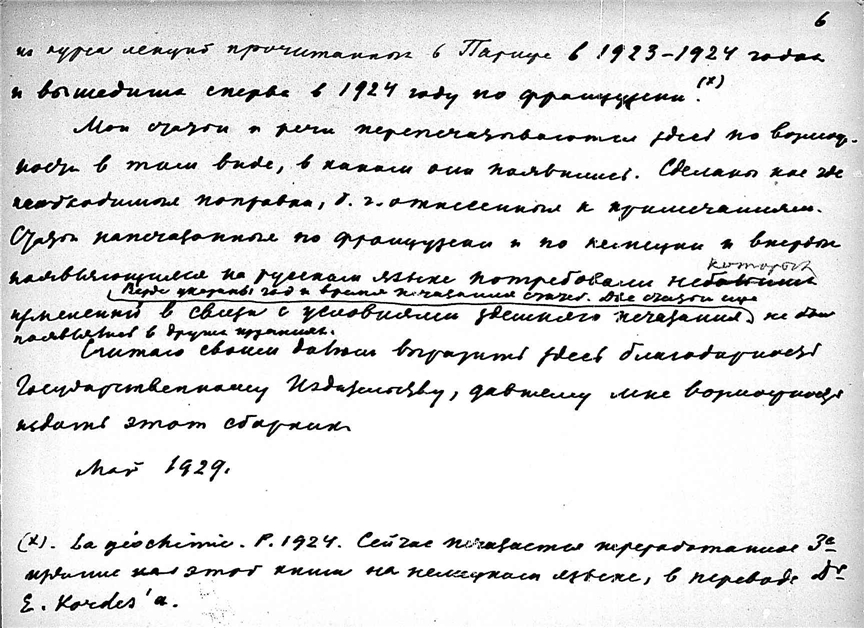 6
из курса лекций прочитанных в Париже в 1923-1924 годах
и вышедших сперва в 1924 году по французски.(x)
Мои статьи и речи перепечатываются здесь по возмож-
ности в том виде, в каком они появились. Сделаны кое где
необходимые поправки, б. ч. отнесенные к примечаниям.
Статьи напечатанные по французски и по немецки и впервые
появляющиеся на русском языке потребовали
которых
Везде указаны год и время печатания статей. Две статьи еще
изменений в связи с условиями здешнего печатания, не были
появлялись в других изданиях.
Считаю своим долгом выразить здесь благодарность
Государственному Издательству, давшему мне возможность
издать этот сборник.
Май 1929.
(x). La géochimie. P. 1924. Сейчас печатается переработанное 3е
издание этой книги на немецком языке, в переводе Dr
E. Kordes'а.